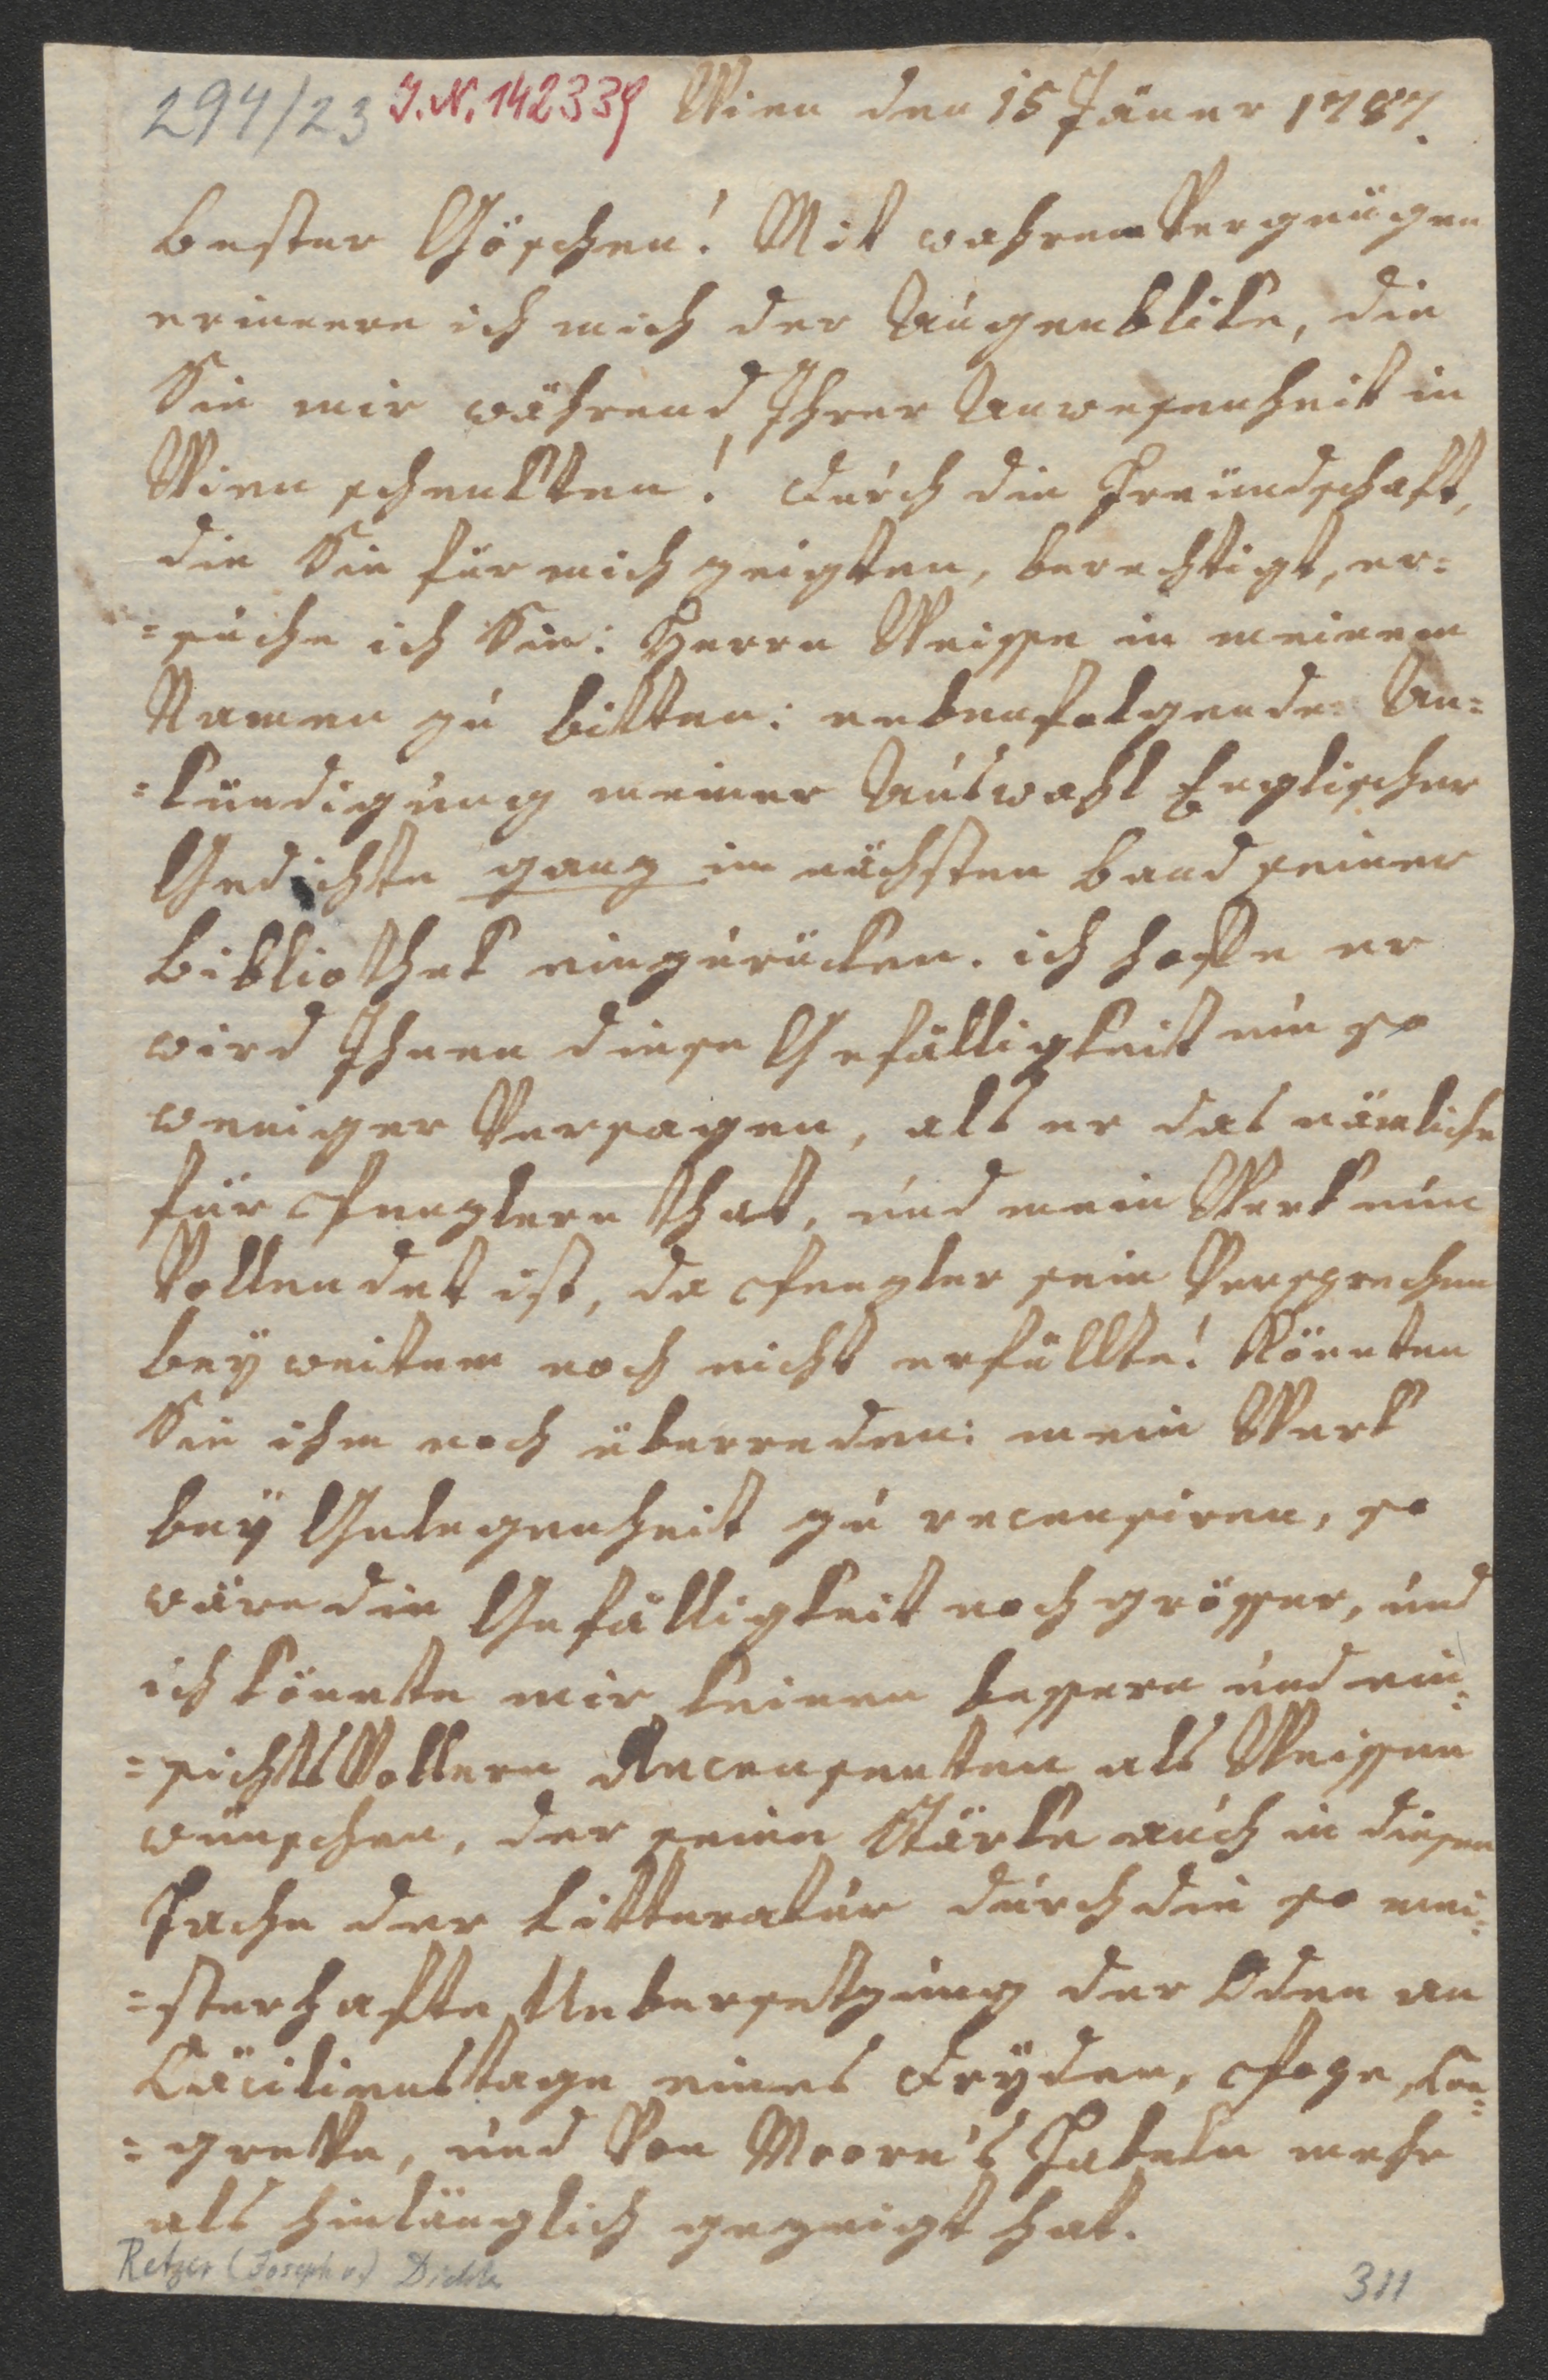 294/23 I.N. 142339 Wien den 15 Jäner 1787.
bester Göschen! Mit wahrem Vergnügen
erinnere ich mich der Augenblike, die
Sie mir während Ihrer Anwesenheit in
Wien schenkten! durch die Freündschaft,
die Sie für mich zeigten, berechtigt, er=
=suche ich Sie: Herrn Weisse in meinem
Namen zu bitten: nebenfolgende An=
=kündigung meiner Auswahl Englischer
Gedichte ganz im nächsten band seiner
bibliothek einzurücken. ich hoffe er
wird Ihnen diese Gefälligkeit um so
weniger Versagen, als er das nämliche
für Spenglern that, und mein Werk nun
Vollendet ist, da Spengler sein Versprechen
bey weitem noch nicht erfüllte! Könnten
Sie ihm noch überreden: mein Werk
bey Gelegenheit zu recensiren, so
wäre die Gefälligkeit noch grösser, und
ich könnte mir keinen bessern und ein=
=sichtsVollern Recensenten als Weissen
wünschen, der seine Stärke auch in diesen
Fache der Litteratur durch die so mei=
=sterhafte Uebersetzung der Oden an
Cäcilienstage eines Dryden, Pope, Con=
=greve, und Von Moore's Fabeln mehr
als hinlänglich gezeigt hat.
Retzer (Joseph v.) Dichter
311